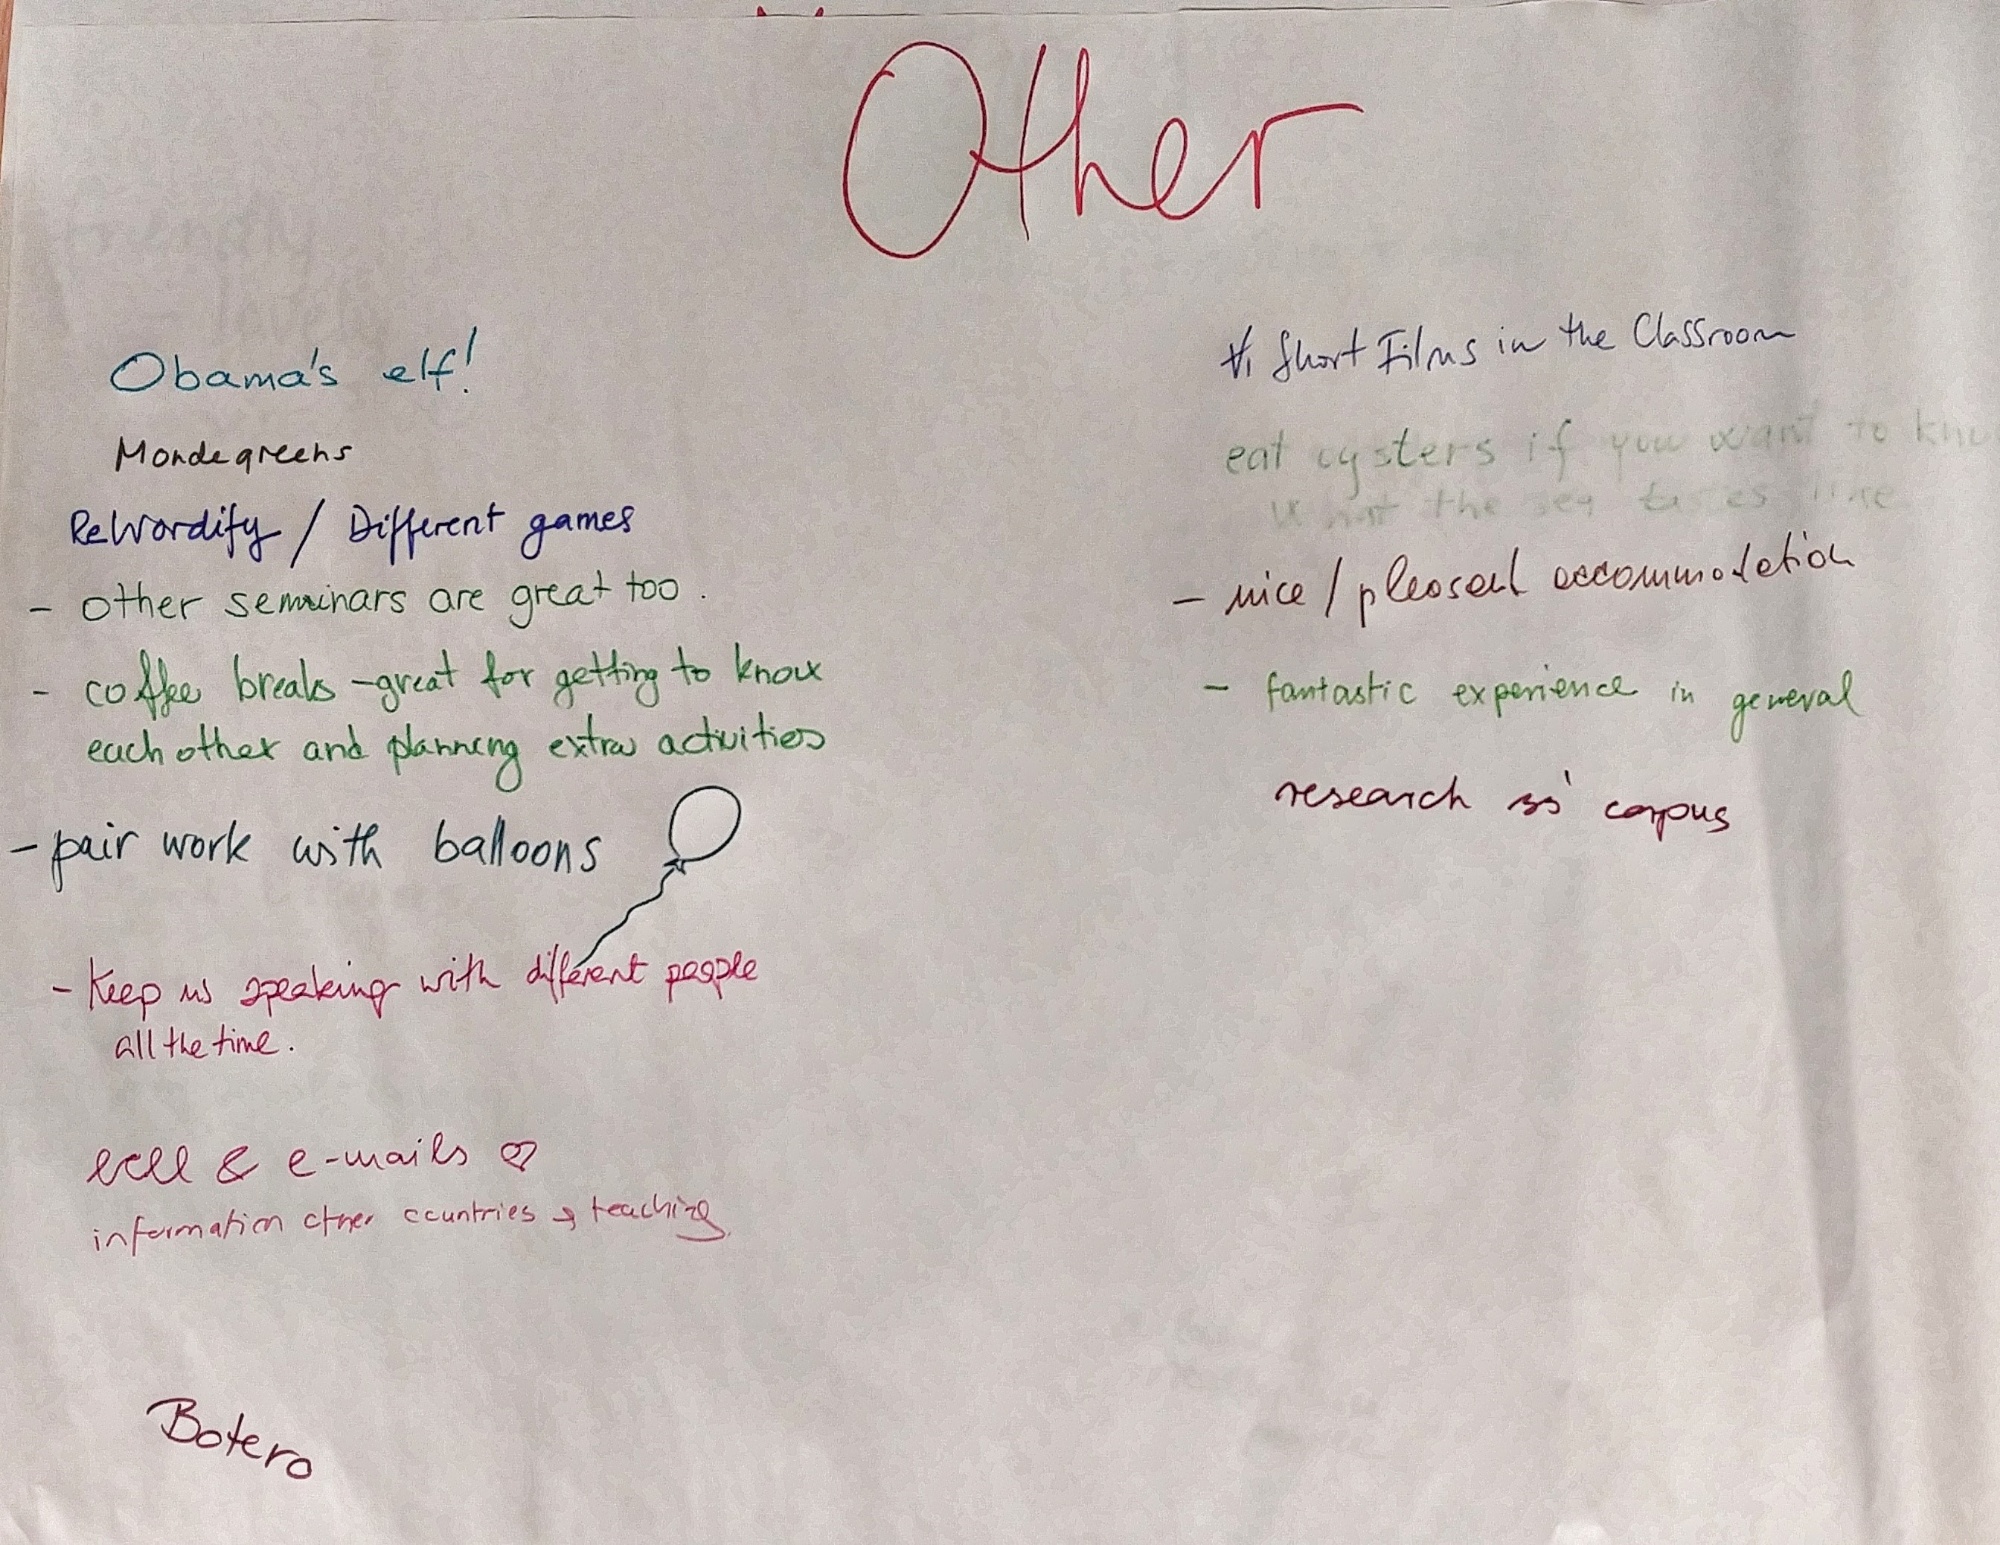 Other
Obama's elf!
Mondegreens
ReWordify / Different games
- other seminars are great too.
- coffee breaks - great for getting to know
each other and planning extra activities
- pair work with balloons
- Keep us speaking with different people
all the time.
& e-mails ♡
information other countries & teaching
Botero
Short Films in the Classroom
eat oysters if you want to know
what the sea tastes like
- nice / pleasant accommodation
- fantastic experience in general
research corpus